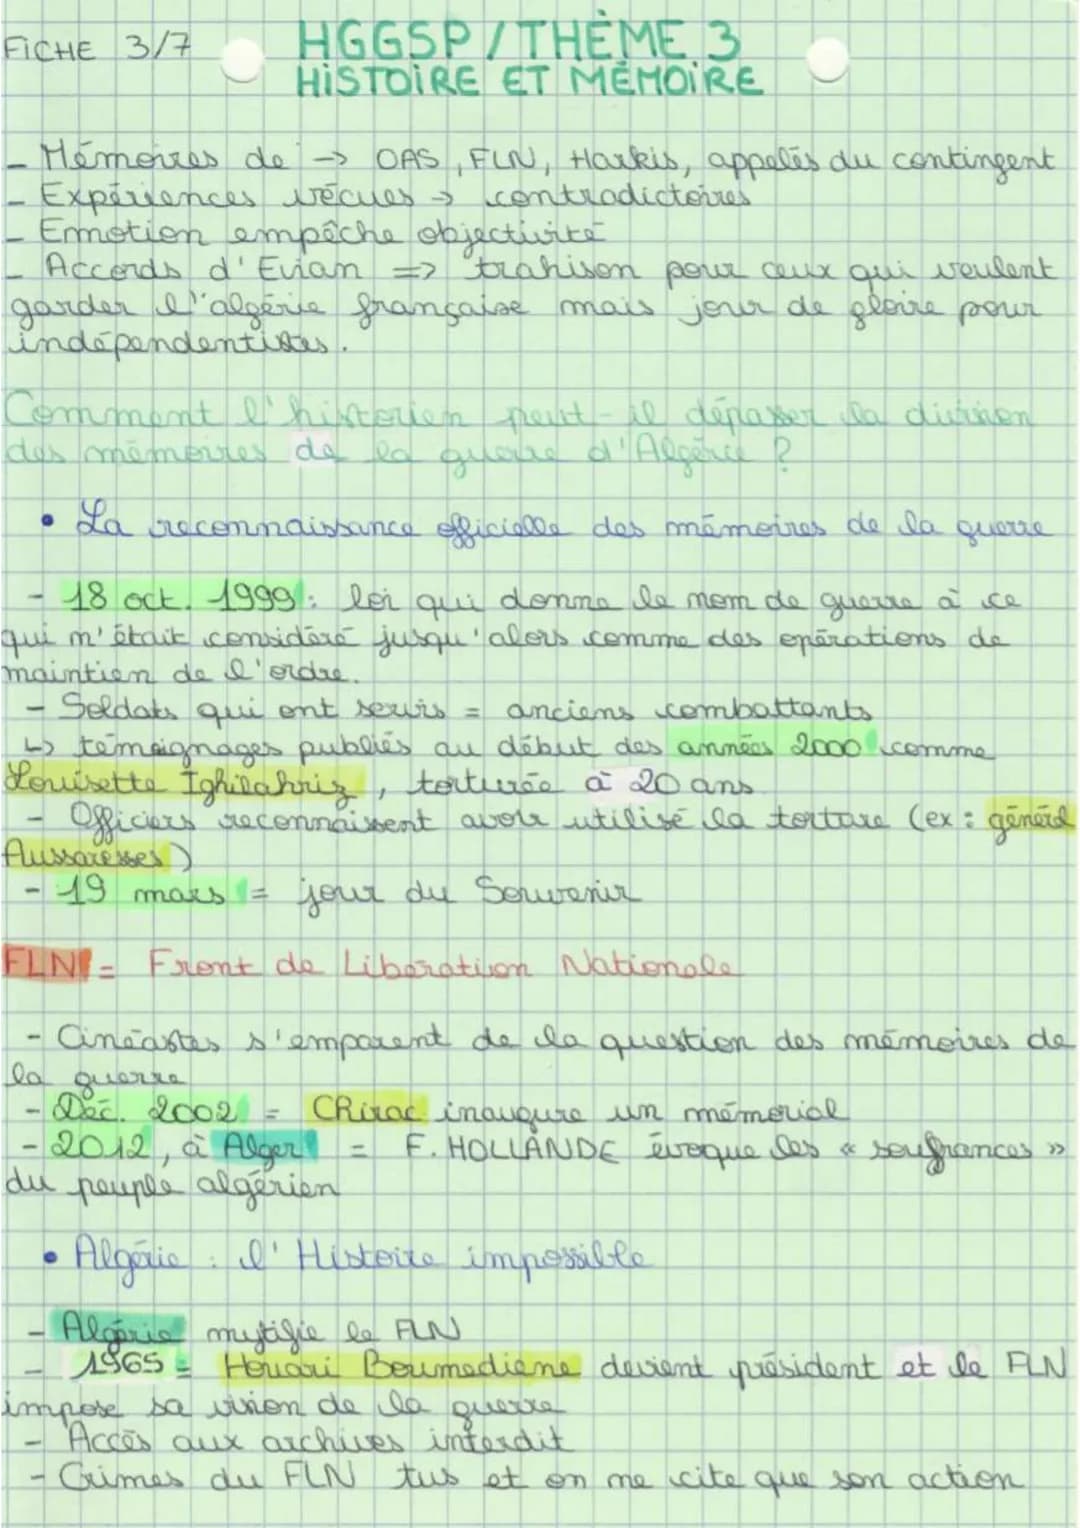 FiCHE 3/7
HGGSP / THÈME 3
HiSTOiRE ET MÉMOiRE
- Mémoires de → OAS, FLN, Harkis, appelés du contingent
- Expériences vécues → contradictoires
- Emotion empêche objectivité
- Accords d'Evian => trahison pour ceux qui veulent
garder l'algérie française mais jour de gloire pour
indépendentistes.
Comment l'historien peut-il dépasser la division
des mémoires de la guerre d'Algérie ?
• La reconnaissance officielle des mémoires de la guerre
- 18 oct. 1999 : loi qui donne le nom de guerre à ce
qui n'était considéré jusqu'alors comme des opérations de
maintien de l'ordre.
- Soldats qui ont servis = anciens combattants
↳ témoignages publiés au début des années 2000 comme
Louisette Ighilahriz, torturée à 20 ans
- Officiers reconnaissent avoir utilisé la torture (ex : général
Aussaresses)
- 19 mars = jour du Souvenir
FLN = Front de Libération Nationale
- Cinéastes s'emparent de la question des mémoires de
la guerre
- Déc. 2002 = CHirac inaugure un mémorial
- 2012, à Alger = F. HOLLANDE évoque les « soufrances »
du peuple algérien
• Algérie : l'Histoire impossible
- Algérie mytifie le FLN
- 1965 = Houari Boumediene devient président et le FLN
impose sa vision de la guerre
- Accès aux archives interdit
- Crimes du FLN tus et on ne cite que son action